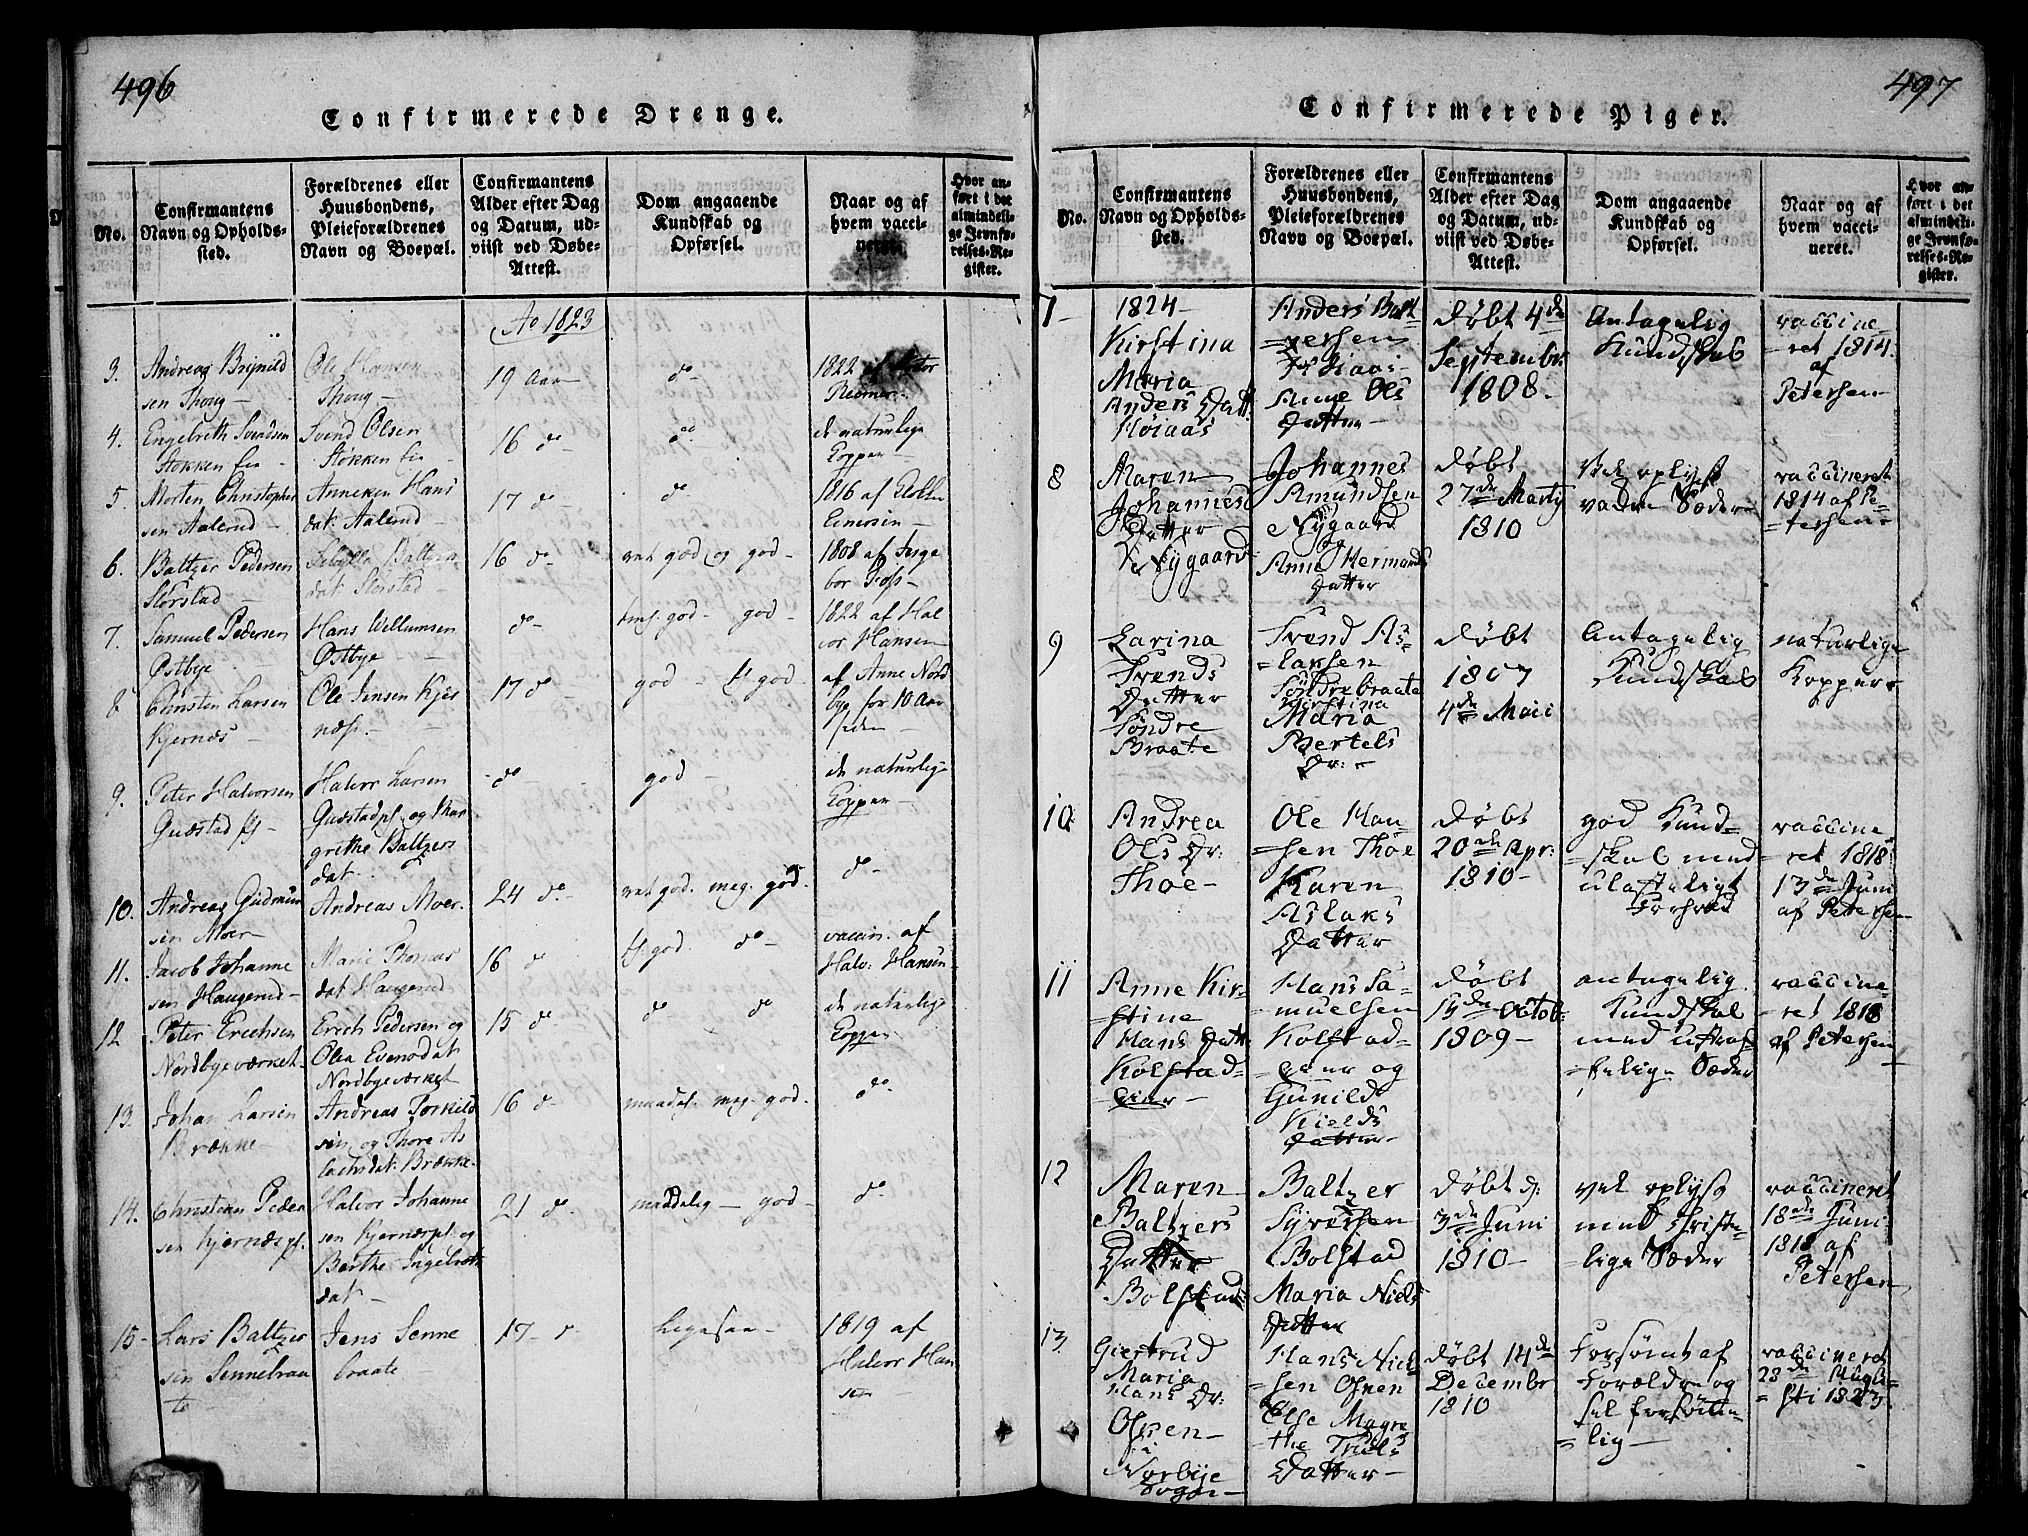 496
Confirmerede Drenge.
No.
Confirmantens
Navn og Opholds-
sted.
Forældrenes eller
Huusbondens,
Pleieforældrenes
Navn og Boepæl.
Confirmantens
Alder efter Dag
og Datum, ud-
viist ved Døbe-
Attest.
Dom angaaende
Kundskab og
Opførsel.
Naar og af
hvem vacci-
neret.
Hvor an-
ført i det
almindeli-
ge Jevnfø-
relses-Re-
gister.
Ao 1823
3.
Andreas
sen Thong -
Ole Hansen
Thong -
19 Aar
do -
1822 af
4.
Engelbreth Svendsen
Støkken Eie -
Svend Olsen
Støkken Eie -
16 do
do
de naturlige
Kopper -
5.
Morten Christopher
sen Aalerud -
Anneken Hans
dat. Aalerud
17 do -
do
1816 af
Einersen -
6.
Baltzer Pedersen
Storstad -
Baltzer
dat Storstad -
16 do
god og god -
1808 af Inge
bor Foss -
7.
Samuel Pedersen
Østbye
Hans Willumsen
Østbye -
do -
god - god
1822 af Hal
vor Hansen
8
Christen Larsen
Kjernæs -
Ole Jensen Kjer
næs. -
17 do -
god - god
af Anne Nord
bye for 10 Aar
siden -
9.
Peter Halvorsen
Gudestad
Halvor Larsen
Gudestad og Mar
grethe Baltzers
dat.
do -
god -
de naturlige
Kopper -
10.
Andreas Gudmun
sen Moer -
Andreas Moer.
24 do -
god. meg. god.
do -
11.
Jacob Johanne
sen Haugerud -
Marie Thomas
dat Haugerud
16 do
god. do -
vaccin. af
Halv: Hansen
12
Peter Erichsen
Nordbyeværket.
Erich Pedersen og
Olea Evensdat
Nordbyeværket
15 do -
do do
de naturlige
Kopper
13.
Johan Larsen
Brække -
Andreas Torkild
sen og Thore As
lachsdat. Brække.
16 do -
maadel. meg. god.
do
14.
Christian Peder
sen Kjernæs pl.
Halvor Johanne
sen Kjernæs pl. og
Berthe Ingebreths
dat -
21 do
maadelig - god -
do
15 -
Lars Baltzer
sen Sennebraa
te
Jens Senne
braate
17 - do
Ligesaa -
1819 af
Halvor Han
sen
497
Confirmerede Piger.
No.
Confirmantens
Navn og Opholds-
sted.
Forældrenes eller
Huusbondens,
Pleieforældrenes
Navn og Boepæl.
Confirmantens
Alder efter Dag
og Datum, ud-
viist ved Døbe-
Attest.
Dom angaaende
Kundskab og
Opførsel.
Naar og af
hvem vacci-
neret.
Hvor an-
ført i det
almindeli-
ge Jevnfø-
relses-Re-
gister.
7 -
1824 -
Kirstina
Maria
Anders Datt:
Høiaas
Anders Balt
=zersen
Høiaas
Anne Ols
Datter
Døbt 4de
Septembr.
1808.
Antagelig
Kundskab
vaccine-
=ret 1814.
af
Petersen
8
Maren
Johannes
Datter
Nygaard
Johannes
Amundsen
Nygaard
og
Anne Hermands
Datter
Døbt
27de Marty
1810
Vel oplyst
Sæder
vaccineret
1814 af Pe-
=tersen
9
Larina
Svends
Datter
Søndre
Braate
Svend As=
=laksen
Søndrebraate
Kirstina
Maria
Bertels
Dr: -
Døbt
1807
4de Maii
Antagelig
Kundskab
naturlige
Kopper
10
Andrea
Ols Dr:
Thoe -
Ole Han-
=sen Thoe
Karen
Aslaks
Datter
Døbt
20de Apr:
1810 -
god Kund-
=skab med
ulasteligt
Forhold
vaccine
=ret 1818
13de Juni
af Petersen
11
Anne Kir-
=stine
Hans Datt
Kolstad-
=eier -
Hans Sa-
=muelsen
Kolstad-
=eier og
Gunild
Kields
Datter -
Døbt
15de Octob:
1809 -
antagelig
Kundskab
med ustraf-
=felige Sæder
vaccine-
=ret 1818
af Petersen
12
Maren
Baltzers
Datter
Bolstad
Baltzer
Syversen
Bolstad
Maria Niels
Datter
Døbt d:
3de Juni
1810 -
vel oplyst
med christe-
=lige Sæder
vaccineret
18de Juni
1818 af
Petersen
13
Giertrud
Maria
Hans Dr:
Ofsen -
i
Norbye
Sogn -
Hans Niel
=sen Ofsen
Else Magre
=the Truls
Datter -
Døbt 14de
Decembr
1810
Forsømt af
Forældre og
=lig -
vaccineret
28de Augu-
=sti 1823.